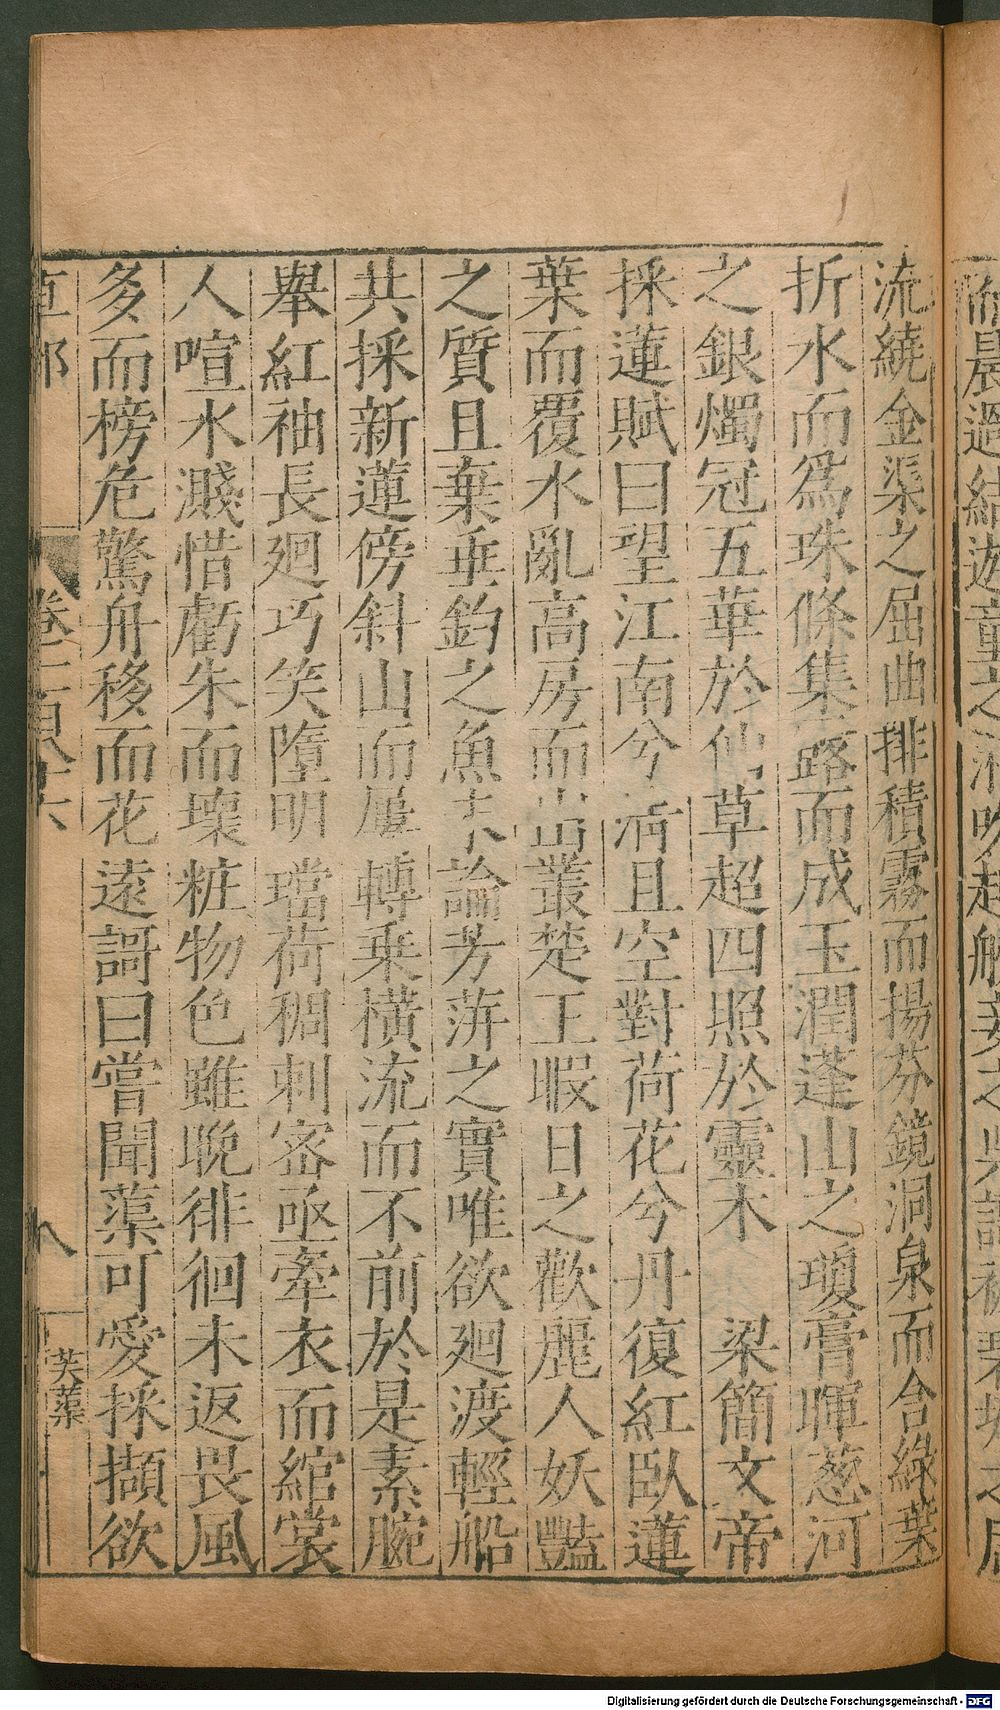 流繞金渠之屈曲排積霧而揚芬鏡洞泉而含綠葉
折水而爲珠條集露而成玉潤蓬山之瓊膏暉葱河
之銀燭冠五華於仙草超四照於靈木　梁簡文帝
採蓮賦曰望江南兮清且空對荷花兮丹復紅臥蓮
葉而覆水亂高房而出叢楚王暇日之歡麗人妖豔
之質且棄垂釣之魚未論芳萍之實唯欲廻渡輕船
共採新蓮傍斜山而屢轉乗橫流而不前於是素腕
舉紅袖長廻巧笑墮明璫荷稠刺密亟牽衣而綰裳
人喧水濺惜虧朱而壞粧物色雖晚徘徊未返畏風
多而榜危驚舟移而花遠謌曰嘗聞蕖可愛採擷欲
草部　卷二百八十六　八　芙蕖
Digitalisierung gefördert durch die Deutsche Forschungsgemeinschaft - DFG